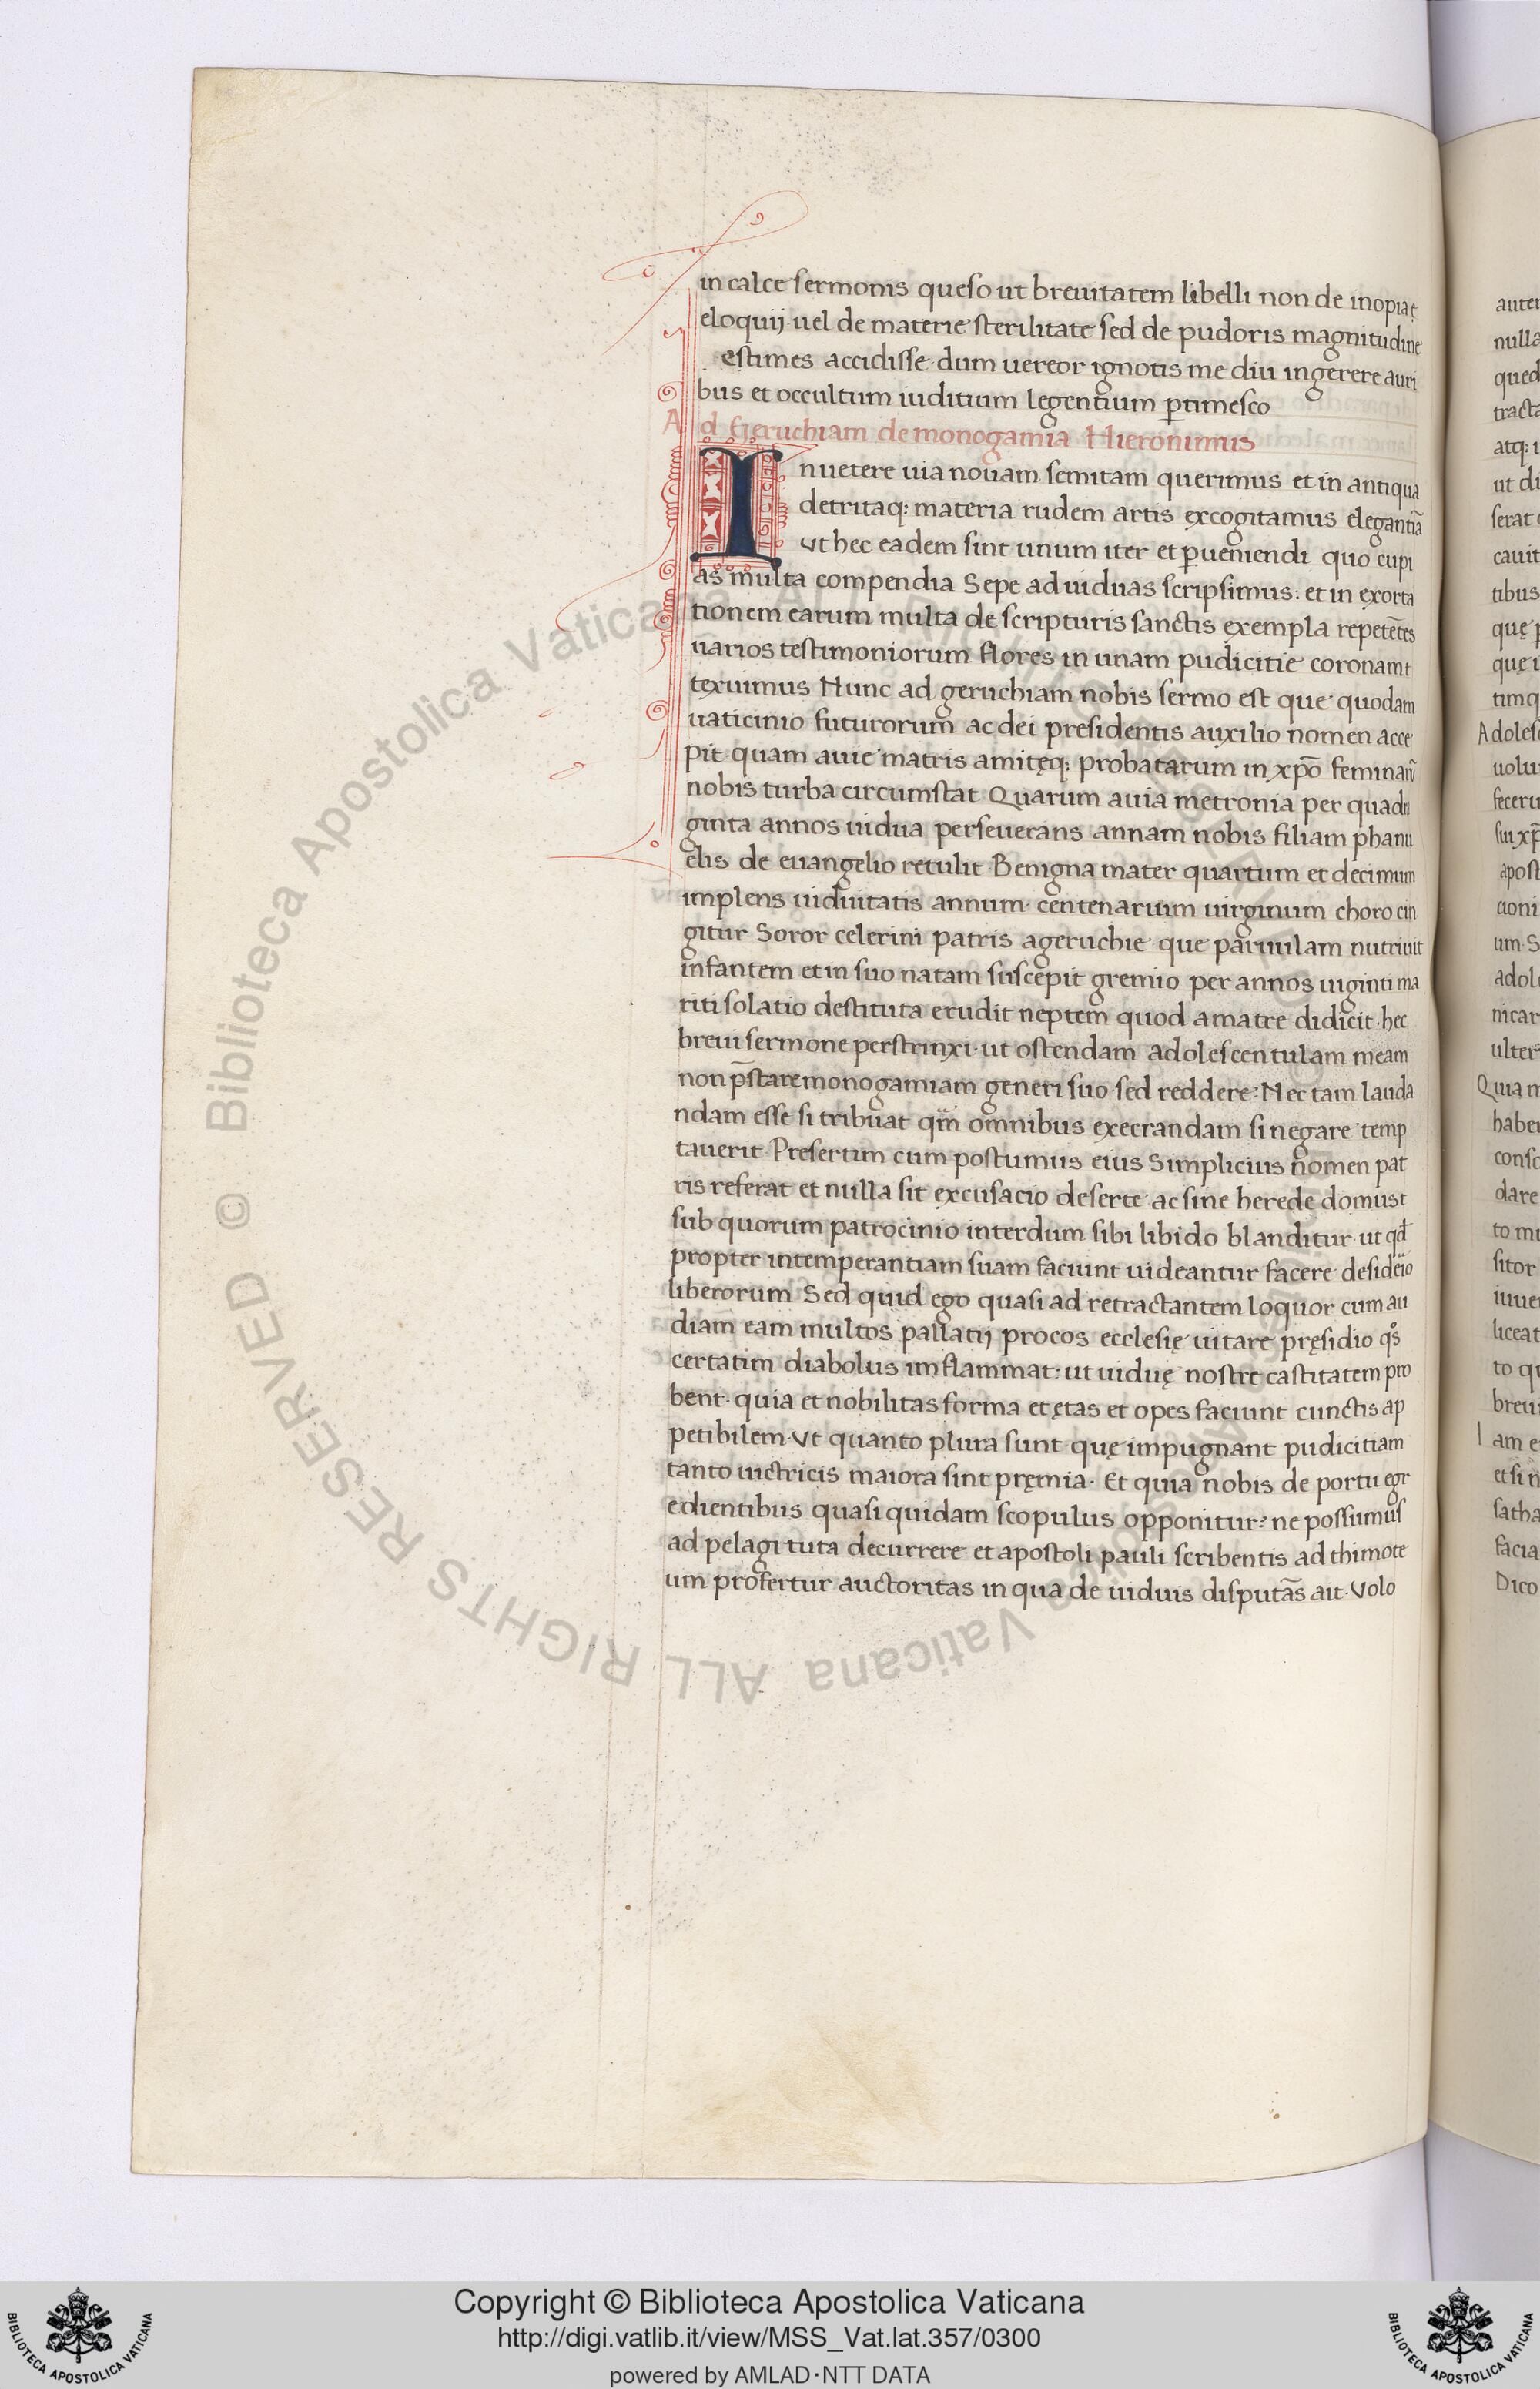 in calce sermonis queso ut breuitatem libelli non de inopia
eloquij uel de materie sterilitate sed de pudoris magnitudine
estimes accidisse dum uereor ignotis me diu ingerere auri
bus et occultum iuditium legentium ꝑtimesco
Ad Geruchiam de monogamia Hieronimus
In uetere uia nouam semitam querimus et in antiqua
detritaq; materia rudem artis excogitamus elegantiā
ut hec eadem sint unum iter et ꝑueniendi quo cupi
as multa compendia Sepe ad uiduas scripsimus: et in exorta
tionem earum multa de scripturis sanctis exempla repetētes
uarios testimoniorum flores in unam pudicitie coronam
texuimus Nunc ad geruchiam nobis sermo est que quodam
uaticinio futurorum ac dei presidentis auxilio nomen acce
pit quam auie matris amitęq; probatarum in xp̄o feminarū
nobis turba circumstat Quarum auia metronia per quadra
ginta annos uidua perseuerans annam nobis filiam phanu
elis de euangelio retulit Benigna mater quartum et decimum
implens uiduitatis annum centenarium uirginum choro cin
gitur Soror celerini patris ageruchie que paruulam nutriuit
infantem et in suo natam suscepit gremio per annos uiginti ma
riti solatio destituta erudit neptem quod a matre didicit · hec
breui sermone perstrinxi · ut ostendam adolescentulam meam
non p̄stare monogamiam generi suo sed reddere: Nec tam lauda
ndam esse si tribuat qm̄ omnibus execrandam si negare temp
tauerit Presertim cum postumus eius Simplicius nomen pat
ris referat et nulla sit excusacio deserte ac sine herede domus
sub quorum patrocinio interdum sibi libido blanditur · ut qđ
propter intemperantiam suam faciunt uideantur facere desideio
liberorum Sed quid ego quasi ad retractantem loquor cum au
diam eam multos pallatij procos ecclesię uitare pręsidio qͦs
certatim diabolus imflammat: ut uiduę nostre castitatem pro
bent · quia et nobilitas forma et ętas et opes faciunt cunctis ap
petibilem · ut quanto plura sunt quę impugnant pudicitiam
tanto uictricis maiora sint pręmia · Et quia nobis de portu egr
edientibus quasi quidam scopulus opponitur: ne possumus
ad pelagi tuta decurrere et apostoli pauli scribentis ad thimote
um profertur auctoritas in qua de uiduis disputās ait · Volo
Copyright © Biblioteca Apostolica Vaticana
http://digi.vatlib.it/view/MSS_Vat.lat.357/0300
powered by AMLAD·NTT DATA
© Biblioteca Apostolica Vaticana ALL RIGHTS RESERVED
BIBLIOTECA APOSTOLICA VATICANA
BIBLIOTECA APOSTOLICA VATICANA